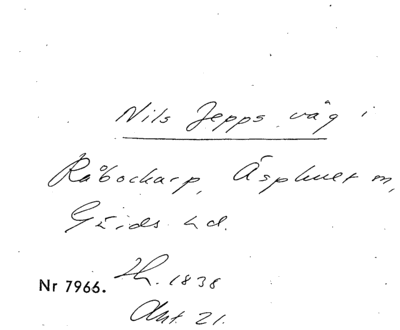 Nils Jepps väg i
Råbockarp, Äsphult m,
Gärds hd.
Nr 7966. Lh. 1838
Akt 21.